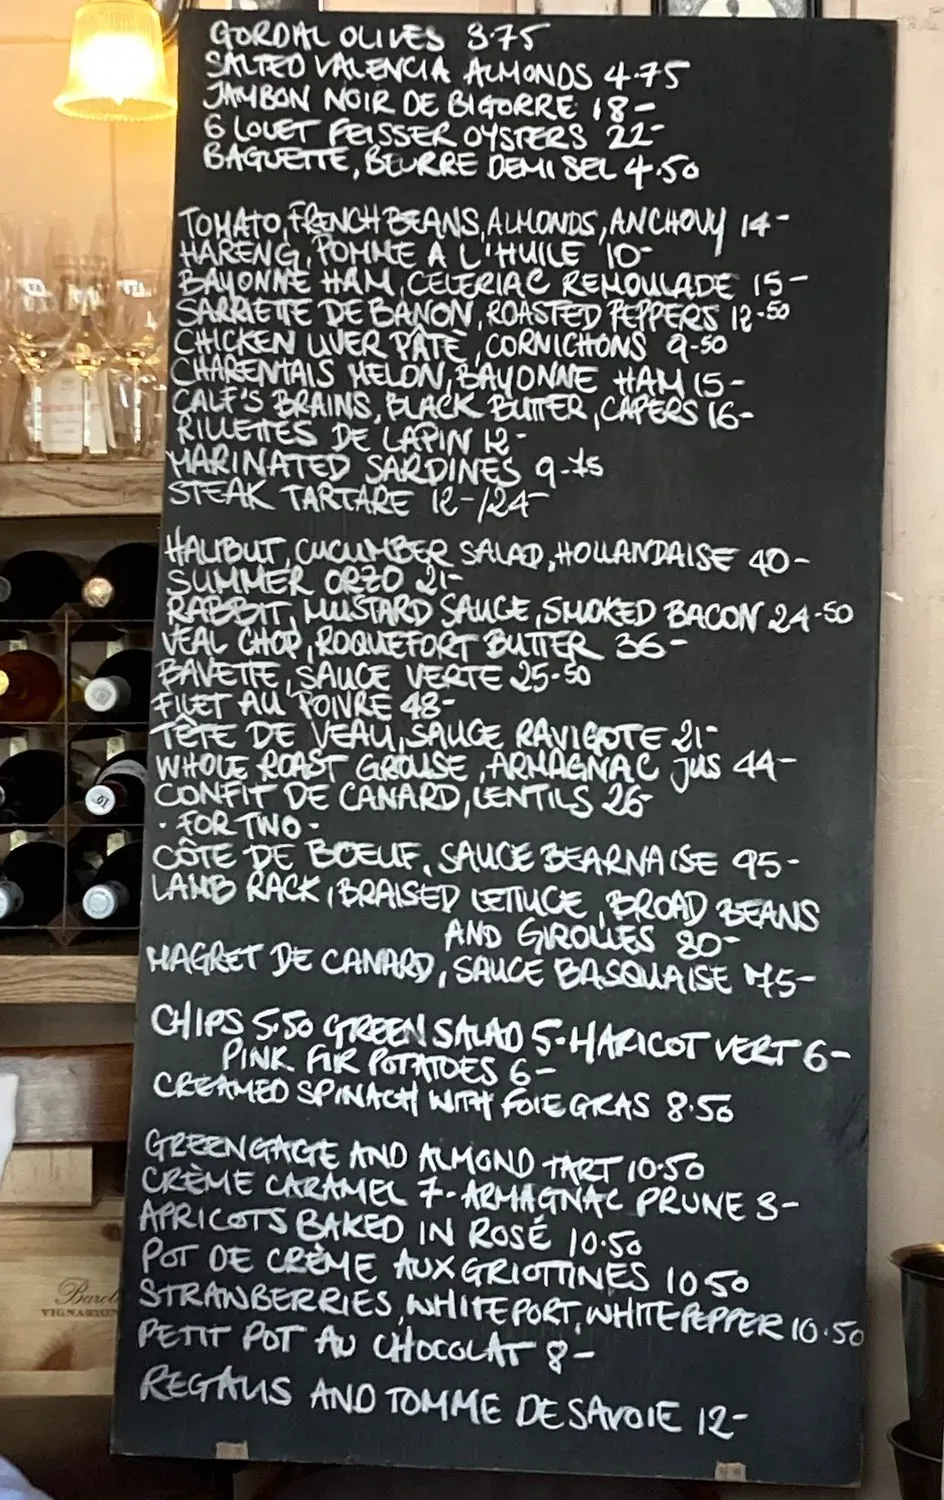 GORDAL OLIVES 3.75
SALTED VALENCIA ALMONDS 4.75
JAMBON NOIR DE BIGORRE 18-
6 LOUET FEISSER OYSTERS 22-
BAGUETTE, BEURRE DEMI SEL 4.50
TOMATO, FRENCH BEANS, ALMONDS, ANCHOVY 14-
HARENG, POMME A L'HUILE 10-
BAYONNE HAM, CELERIAC REMOULADE 15-
SARRIETTE DE BANON, ROASTED PEPPERS 12-50
CHICKEN LIVER PÂTÉ, CORNICHONS 9-50
CHARENTAIS MELON, BAYONNE HAM 15-
CALF'S BRAINS, BLACK BUTTER, CAPERS 16-
RILLETTES DE LAPIN 12-
MARINATED SARDINES 9-75
STEAK TARTARE 12-/24-
HALIBUT, CUCUMBER SALAD, HOLLANDAISE 40-
SUMMER ORZO 21-
RABBIT, MUSTARD SAUCE, SMOKED BACON 24-50
VEAL CHOP, ROQUEFORT BUTTER 36-
BAVETTE, SAUCE VERTE 25-50
FILET AU POIVRE 48-
TÊTE DE VEAU, SAUCE RAVIGOTE 21-
WHOLE ROAST GROUSE, ARMAGNAC JUS 44-
CONFIT DE CANARD, LENTILS 26-
- FOR TWO -
CÔTE DE BOEUF, SAUCE BEARNAISE 95-
LAMB RACK, BRAISED LETTUCE, BROAD BEANS
AND GIROLLES 80-
MAGRET DE CANARD, SAUCE BASQUAISE 75-
CHIPS 5.50 GREEN SALAD 5- HARICOT VERT 6-
PINK FIR POTATOES 6-
CREAMED SPINACH WITH FOIE GRAS 8.50
GREENGAGE AND ALMOND TART 10.50
CRÈME CARAMEL 7- ARMAGNAC PRUNE 3-
APRICOTS BAKED IN ROSÉ 10.50
POT DE CRÈME AUX GRIOTTINES 10 50
STRAWBERRIES, WHITE PORT, WHITE PEPPER 10.50
PETIT POT AU CHOCOLAT 8-
REGALIS AND TOMME DE SAVOIE 12-